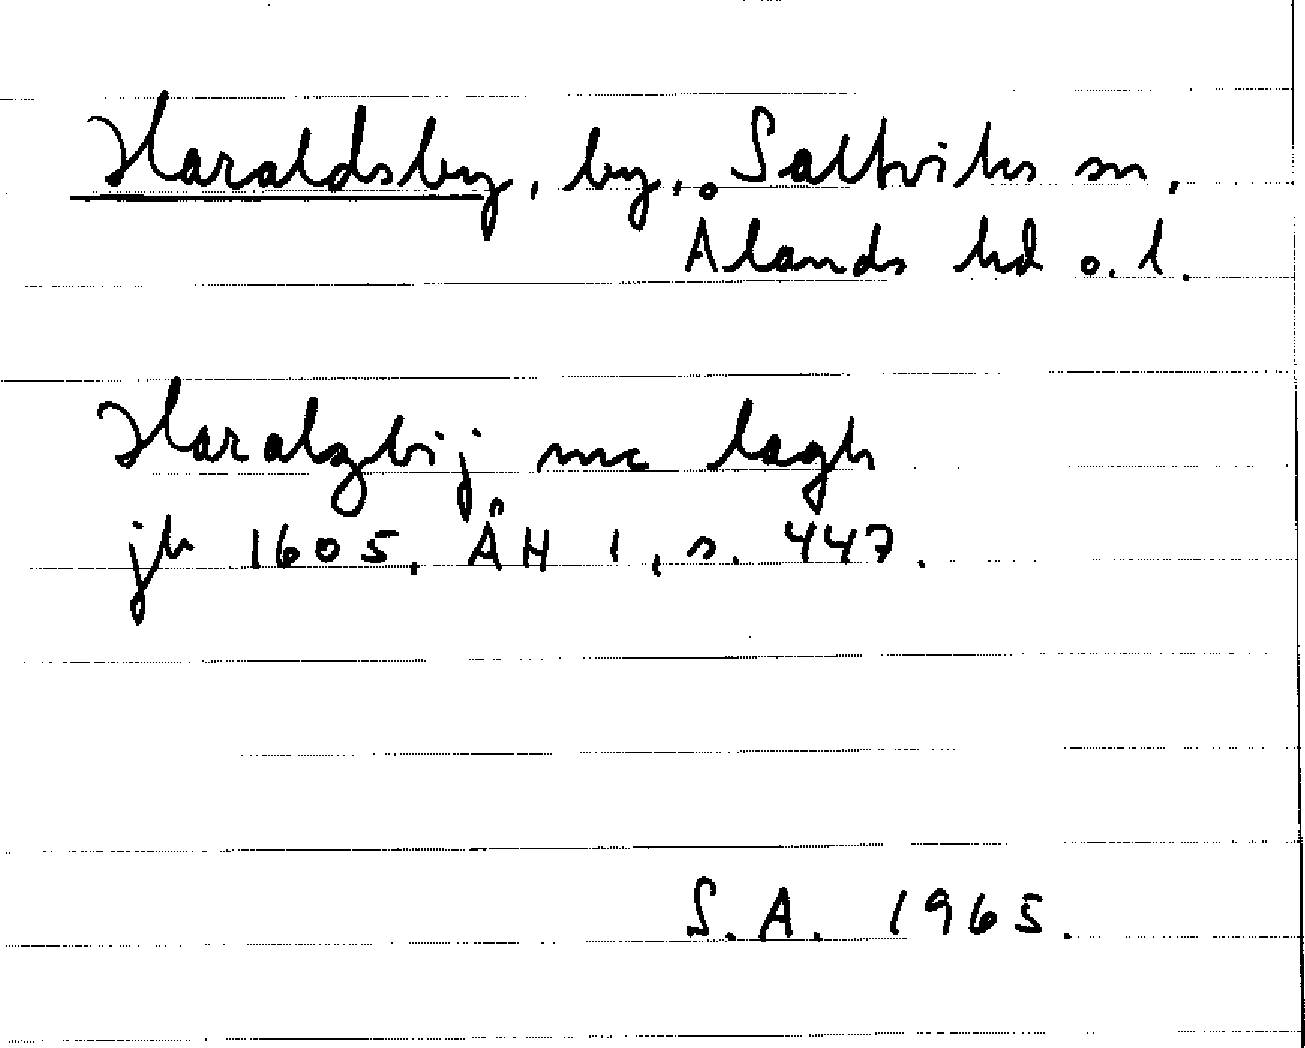 Haraldsby, by, Saltviks sn,
Ålands hd o. l.
Haralzbij mc lagh
jb 1605, ÅH 1, s. 447.
S.A. 1965.